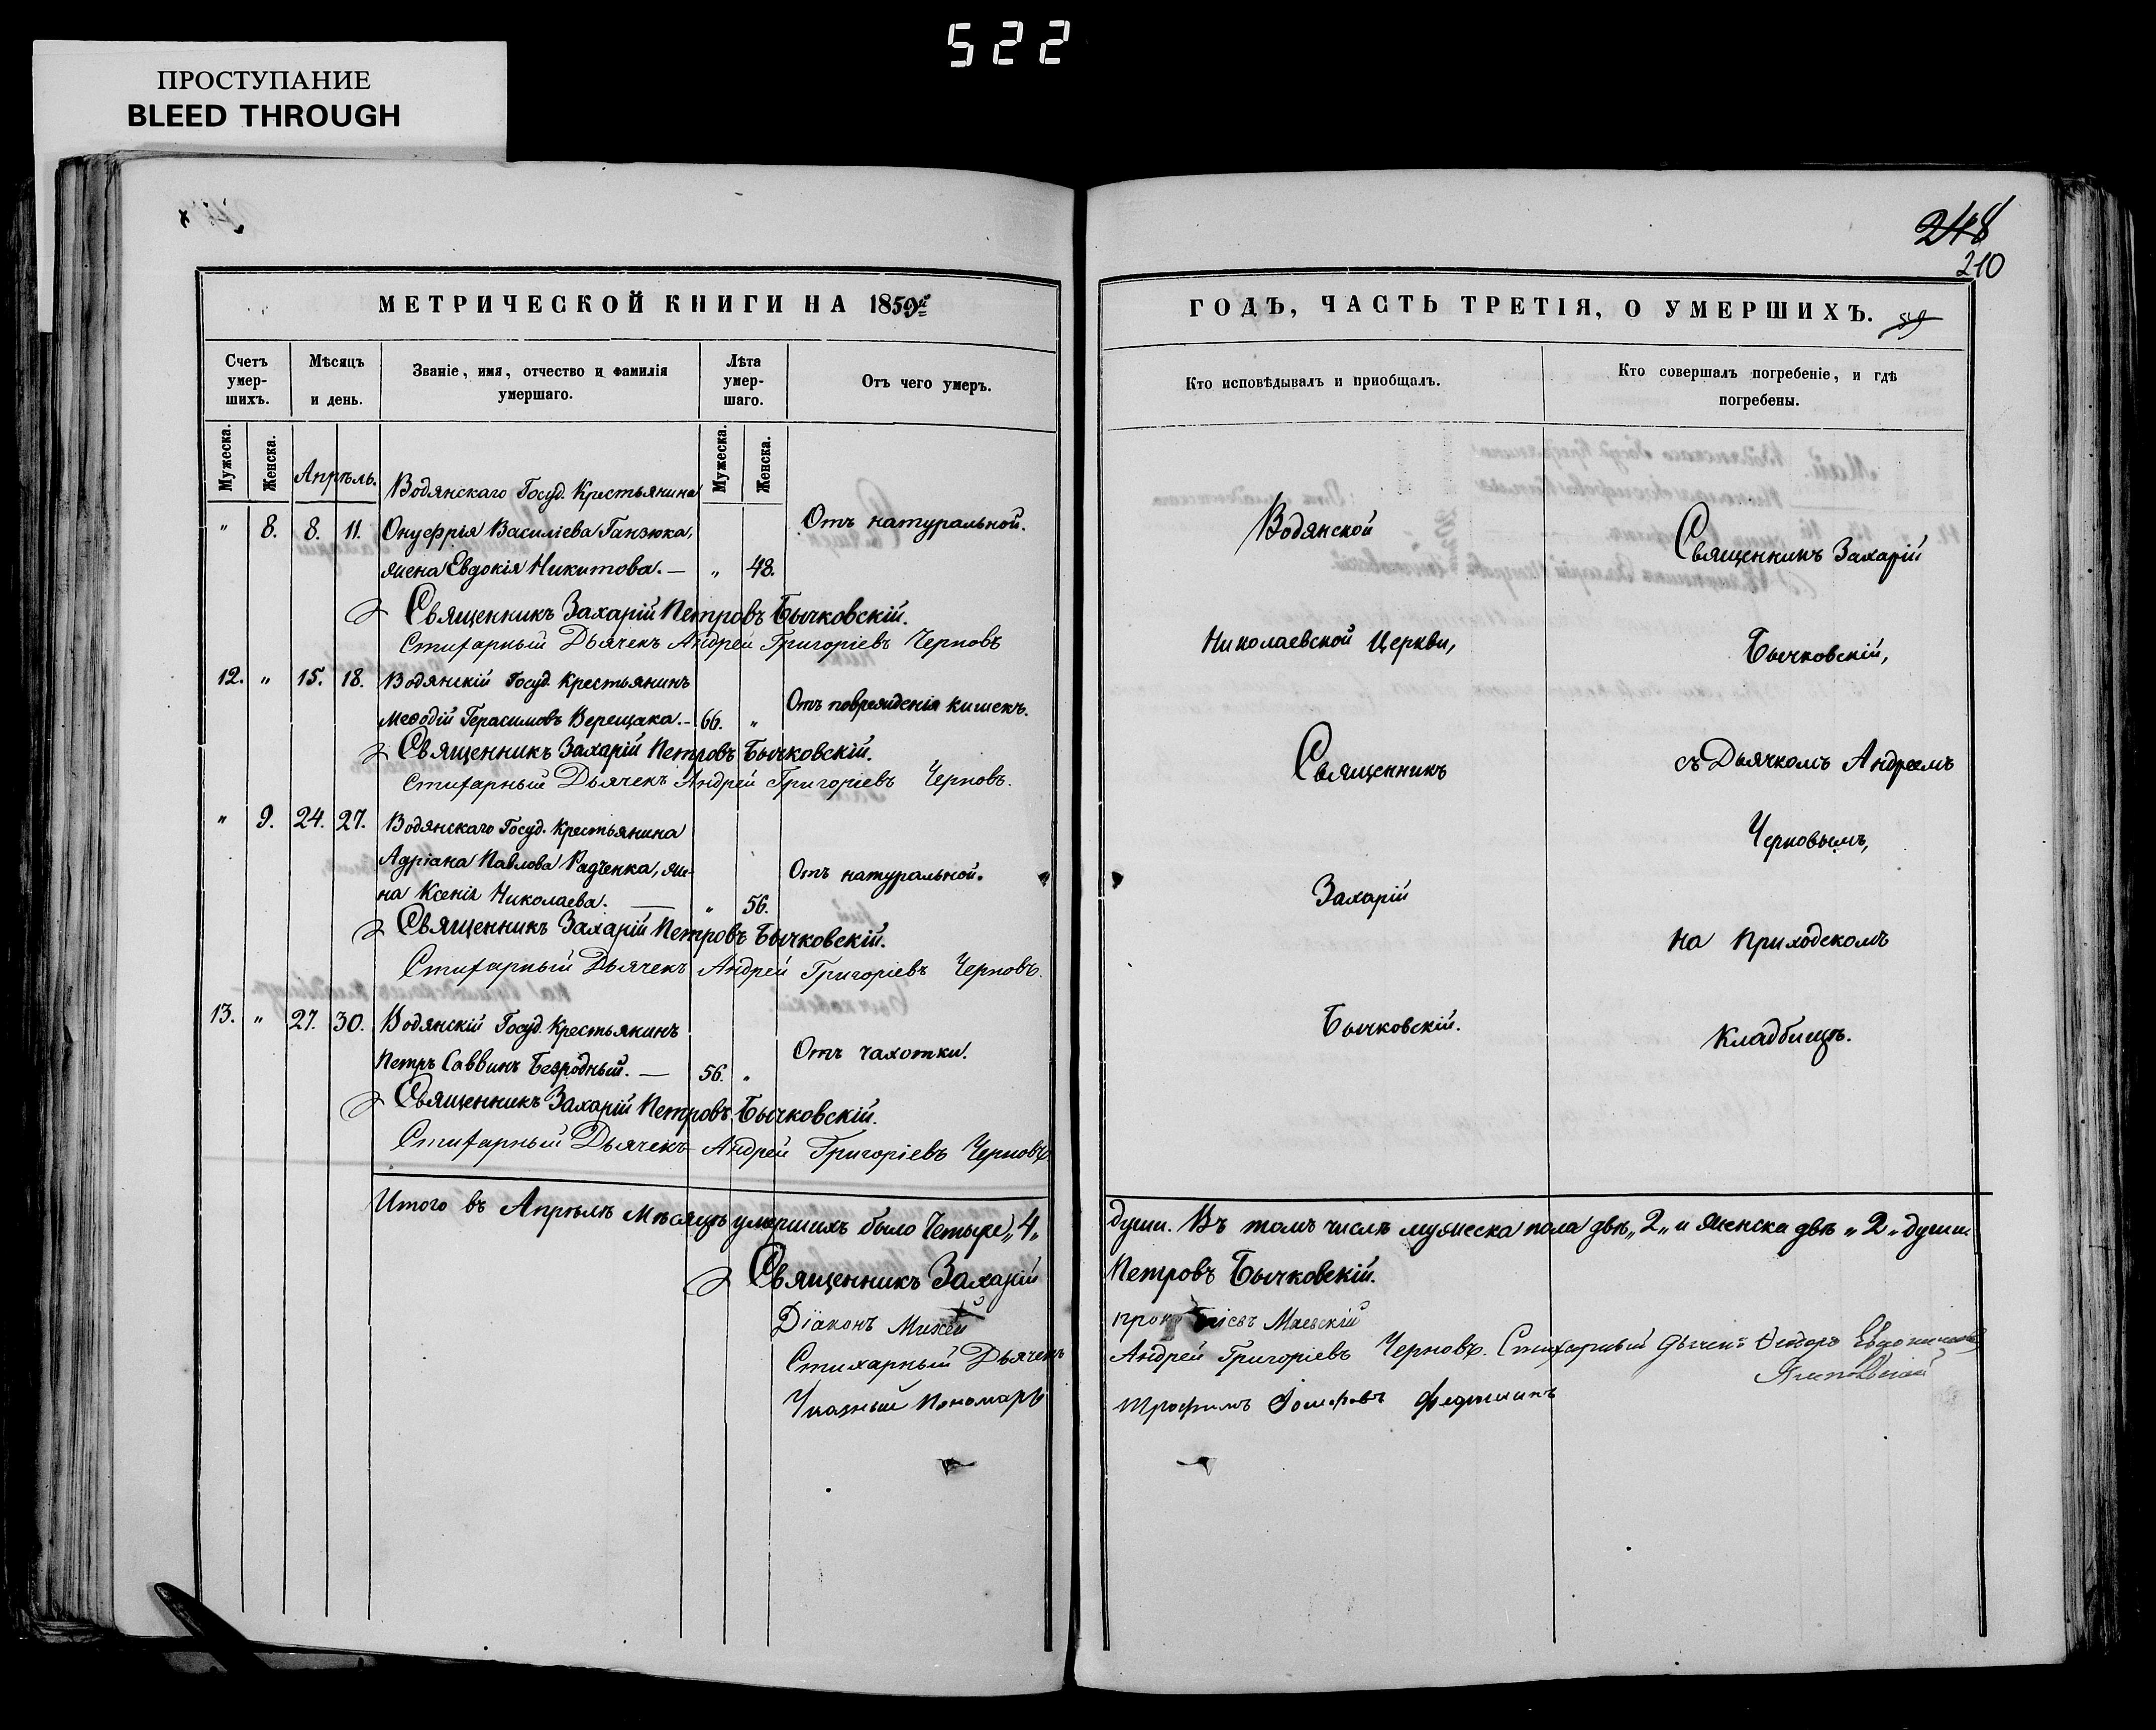 522
ПРОСТУПАНИЕ
BLEED THROUGH
248
210
МЕТРИЧЕСКОЙ КНИГИ НА 1859й
Счетъ умер-шихъ.
Мѣсяцъ и день.
Званіе, имя, отчество и фамилія умершаго.
Лѣта умер-шаго.
Отъ чего умеръ.
Мужеска.
Женска.
Апрѣль.
Мужеска.
Женска.
Водянскаго Госуд. Крестьянина
" 8. 8. 11. Онуфрія Василіева Ганзюка, Отъ натуральной.
жена Евдокія Никитова. — " 48.
Священникъ Захарій Петровъ Бычковскій.
Стихарный Дьячекъ Андрей Григоріевъ Черновъ
12. " 15. 18. Водянскій Госуд. Крестьянинъ
Меѳодій Герасимовъ Верещака. — 66. " Отъ поврежденія кишекъ.
Священникъ Захарій Петровъ Бычковскій.
Стихарный Дьячекъ Андрей Григоріевъ Черновъ.
" 9. 24. 27. Водянскаго Госуд. Крестьянина
Адріана Павлова Радченка, же-
на Ксенія Николаева. — " 56. Отъ натуральной.
Священникъ Захарій Петровъ Бычковскій.
Стихарный Дьячекъ Андрей Григоріевъ Черновъ.
13. " 27. 30. Водянскій Госуд. Крестьянинъ
Петръ Саввинъ Безродный. — 56. " Отъ чахотки.
Священникъ Захарій Петровъ Бычковскій.
Стихарный Дьячекъ Андрей Григоріевъ Черновъ
Итого въ Апрѣлѣ Мѣсяцѣ умершихъ было Четыре „4„
Священникъ Захарій
Діаконъ Михей
Стихарный Дьячекъ
Указный Пономарь
ГОДЪ, ЧАСТЬ ТРЕТІЯ, О УМЕРШИХЪ. 59
Кто исповѣдывалъ и пріобщалъ.
Кто совершалъ погребеніе, и гдѣ
погребены.
Водянской
Николаевской Церкви,
Священникъ
Захарій
Бычковскій.
Священникъ Захарій
Бычковскій,
съ Дьячкомъ Андреемъ
Черновымъ,
На Приходскомъ
Кладбищѣ.
души. Въ томъ числѣ мужеска пола двѣ „2„ и женска двѣ „2„ души.
Петровъ Бычковскій.
Маевскій
Андрей Григоріевъ Черновъ. Стихарный
Трофимъ